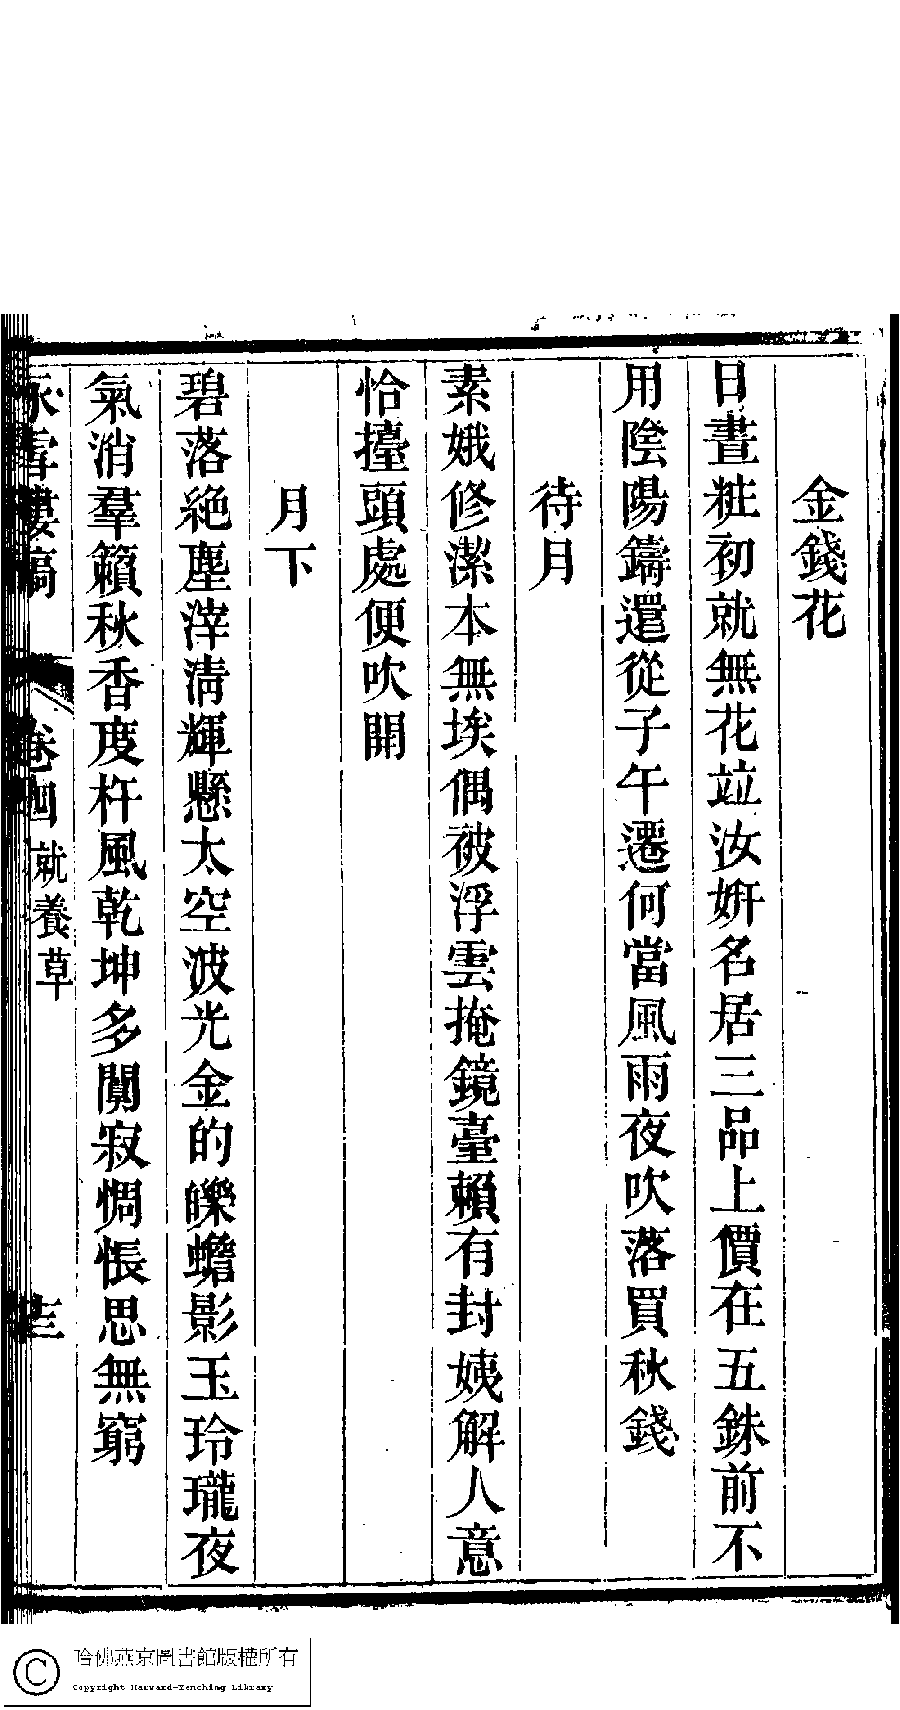 金錢花
日晝粧初就無花竝汝妍名居三品上價在五銖前不
用陰陽鑄還從子午遷何當風雨夜吹落買秋錢
待月
素娥修潔本無埃偶被浮雲掩鏡臺賴有封姨解人意
恰擡頭處便吹開
月下
碧落絕塵滓淸輝懸太空波光金的皪蟾影玉玲瓏夜
氣消羣籟秋香度杵風乾坤多闃寂惆悵思無窮
雪樓稿 卷四 就養草 十三
哈佛燕京圖書館版權所有
Copyright Harvard-Yenching Library